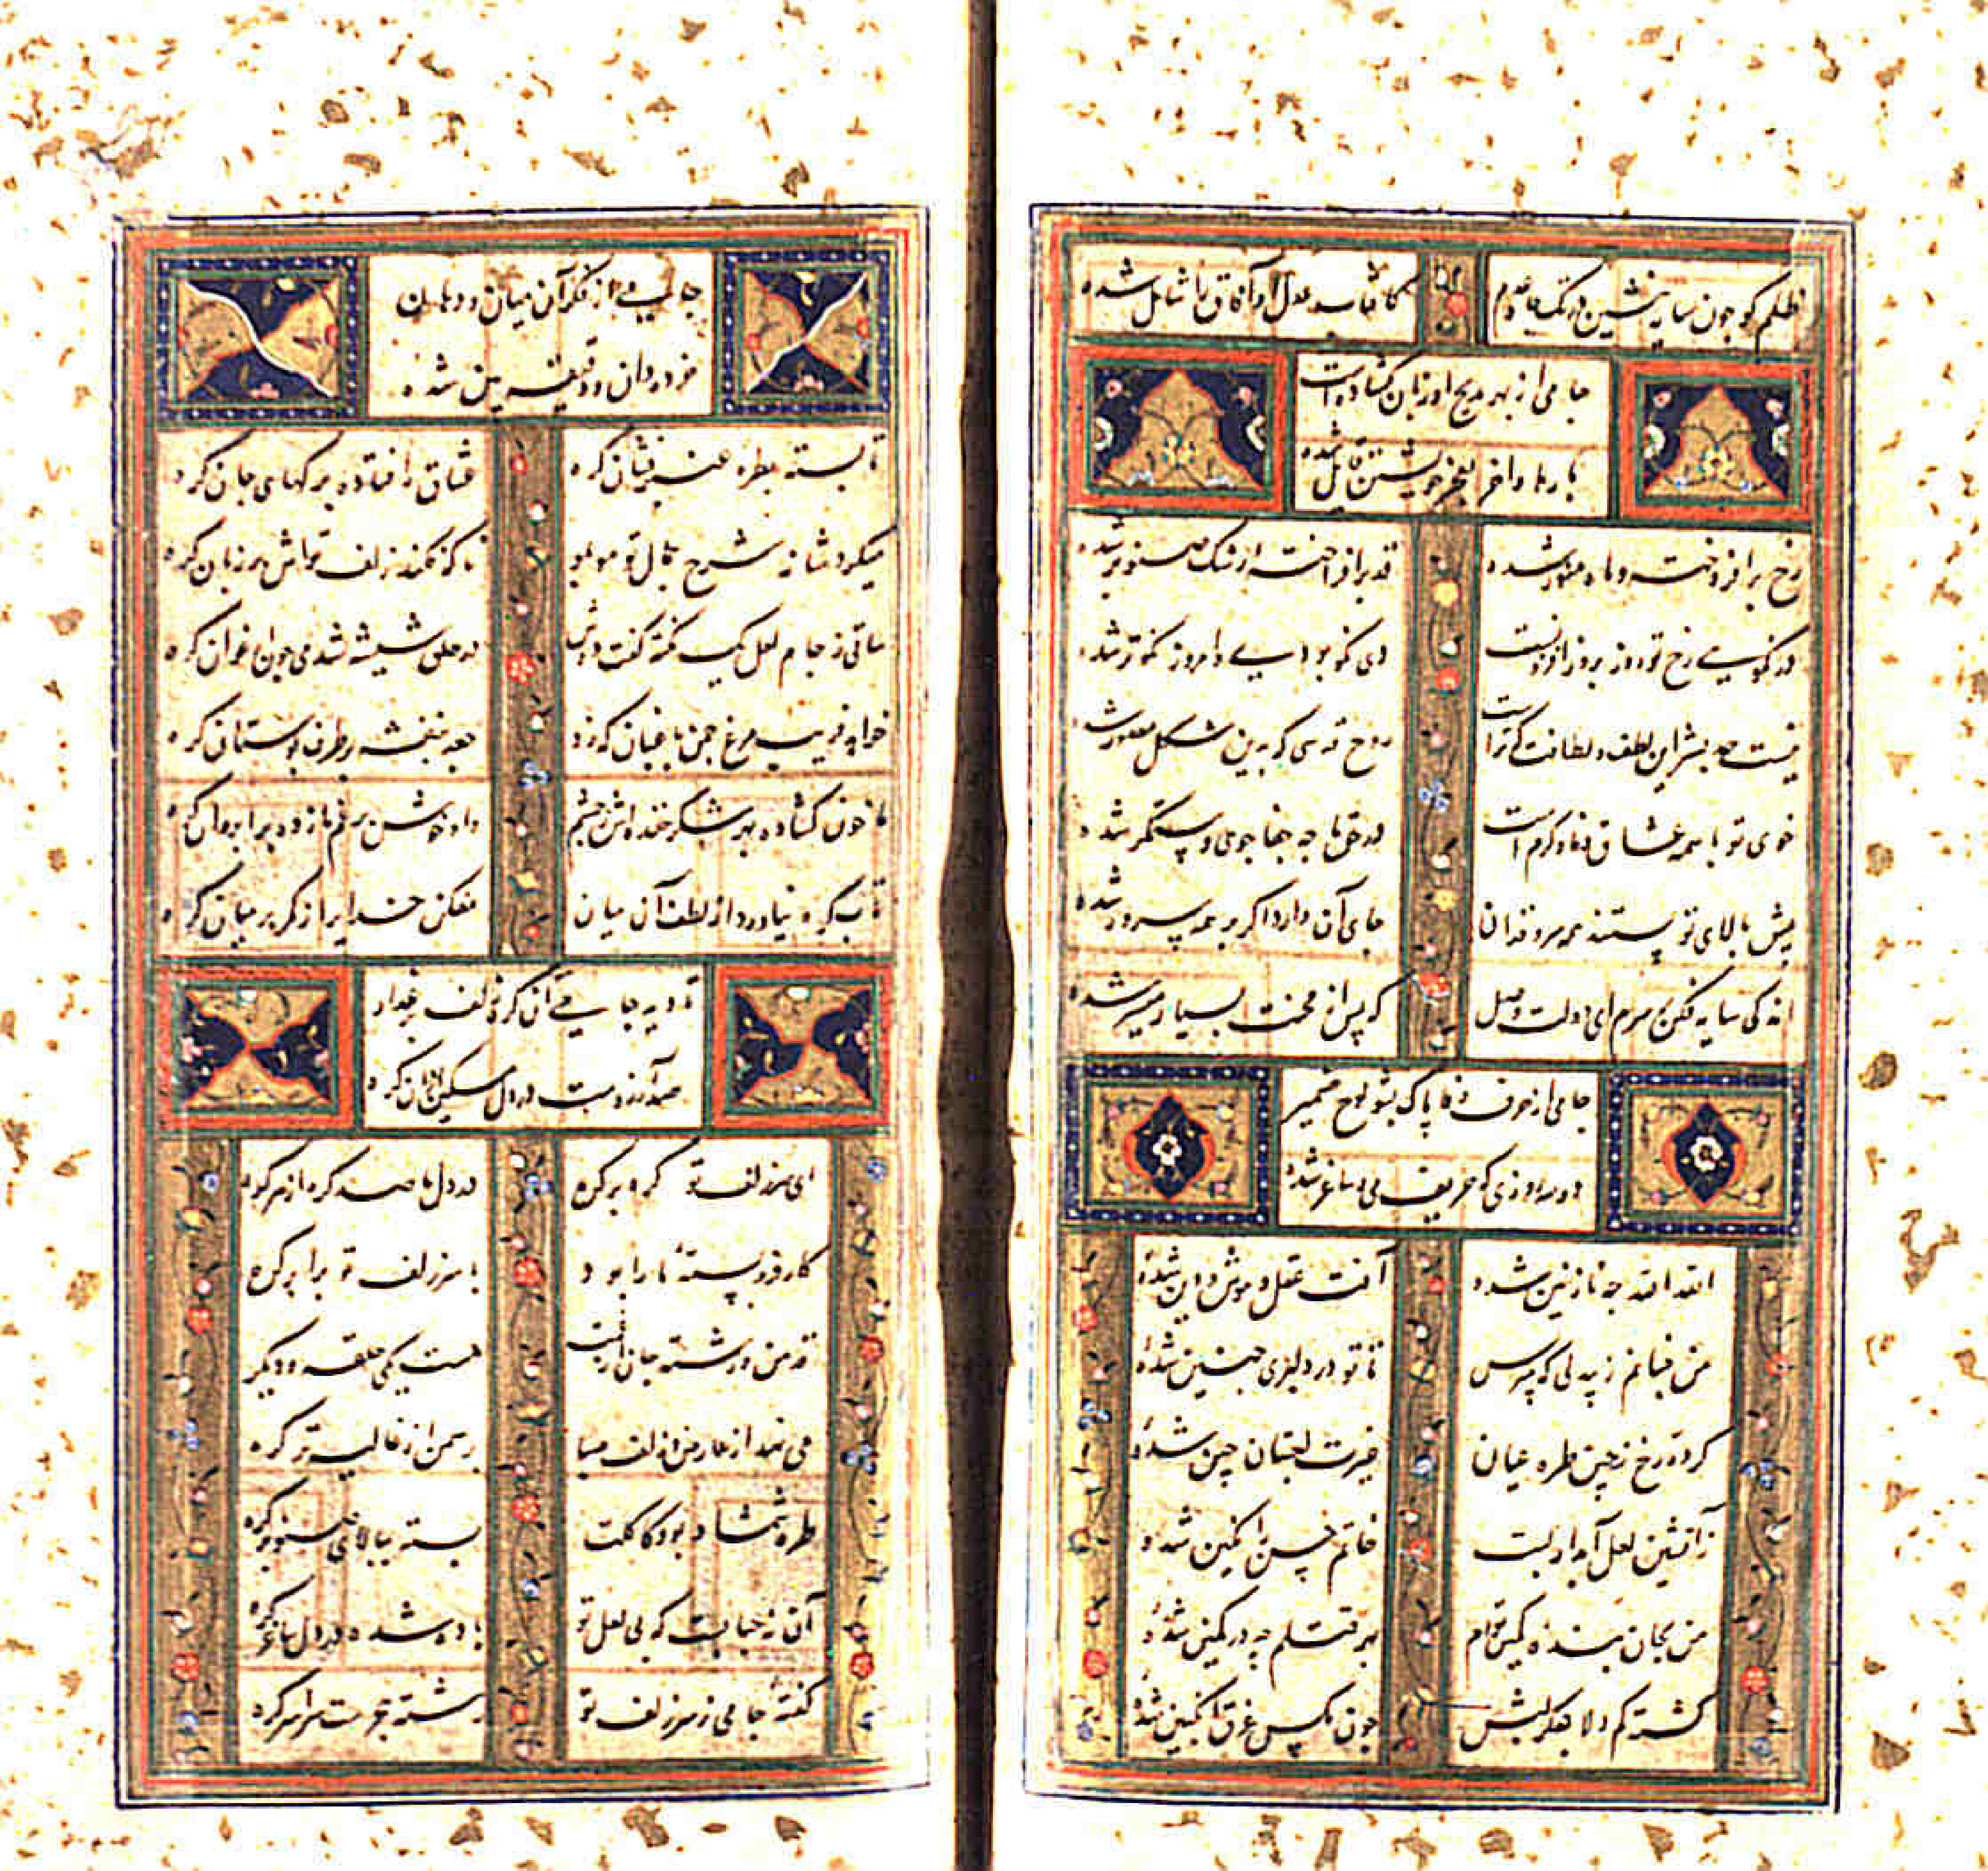 ظلم کو چون سایه بنشین در تک چاه عدم
کافتاب عدل او آفاق را شامل شده
جامی از بهر مدیح او زبان بگشاده است
بارها و آخر بعجز خویشتن قایل شده
رخ برافروخته و ماه منور شده
قد برافراخته رشک صنوبر شده
در نکویی رخ تو روز بروز افزونست
دی نکو بوده و امروز نکوتر شده
نیست حد بشر این لطف و لطافت که تراست
روح قدسی که بدین شکل مصور شده
خوی تو با همه عشاق وفا و کرم است
در حق ما چه جفا جوی و ستمگر شده
پیش بالای تو پستند همه سرو قدان
جای آن دارد اگر بر همه سرور شده
اندکی سایه فکن بر سرم ای دولت وصل
که پس از محنت بسیار میسر شده
جامی از حرف وفا پاک بشو لوح ضمیر
که حریف می و ساغر شده
الله الله چه نازنین شده
آفت عقل و هوش و دین شده
من چنانم ز بیدلی که مپرس
تا تو در دلبری چنین شده
کرده رخ ز چین طره عیان
غیرت لعبتان چین شده
زآتشین لعل آبدار لبت
خاتم حسن را نگین شده
من بجان بنده کمین توام
بهر قتلم چه در کمین شده
گشته گم دلا بفکر لبش
چون مگس غرق انگبین شده
جامی از فکر آن میان و دهان
خرده دان و دقیقه بین شده
تا بسته بطره عنبرفشان گره
عشاق را فتاده برگهای جان گره
میکرد شانه شرح جمال تو موبمو
ناگه فکند زلف تواش بر زبان گره
ساقی ز جام لعل تو یک نکته گفت دوش
در حلق شیشه شد می چون ارغوان گره
خواهد فریب مرغ چمن باغبان که زد
جعد بنفشه بر طرف بوستان گره
تا خون گشاده بهر شکرخنده اش ز چشم
تاب گره نیاورد از لطف آن میان
مفکن خدایرا ز کمر بر میان گره
تا دیده جامی آن گره زلف بر عذار
صد آرزوست در دل مسکین از آن گره
ای سر زلف تو گره بر گره
در دل ما صد گره از هر گره
کار فروبسته ما را بود
با سر زلف تو برابر گره
قد من و رشته جان
هست یکی حلقه و دیگر
می نهد از عارض و زلف صبا
بر سمن از غالیه تر گره
طره شمشاد بود کاکلت
بسته ببالای صنوبر گره
آن نه حبابست که بی لعل تو
باده شده در دل ساغر گره
گفته جامی ز سر زلف تو
رشته سراسر گره